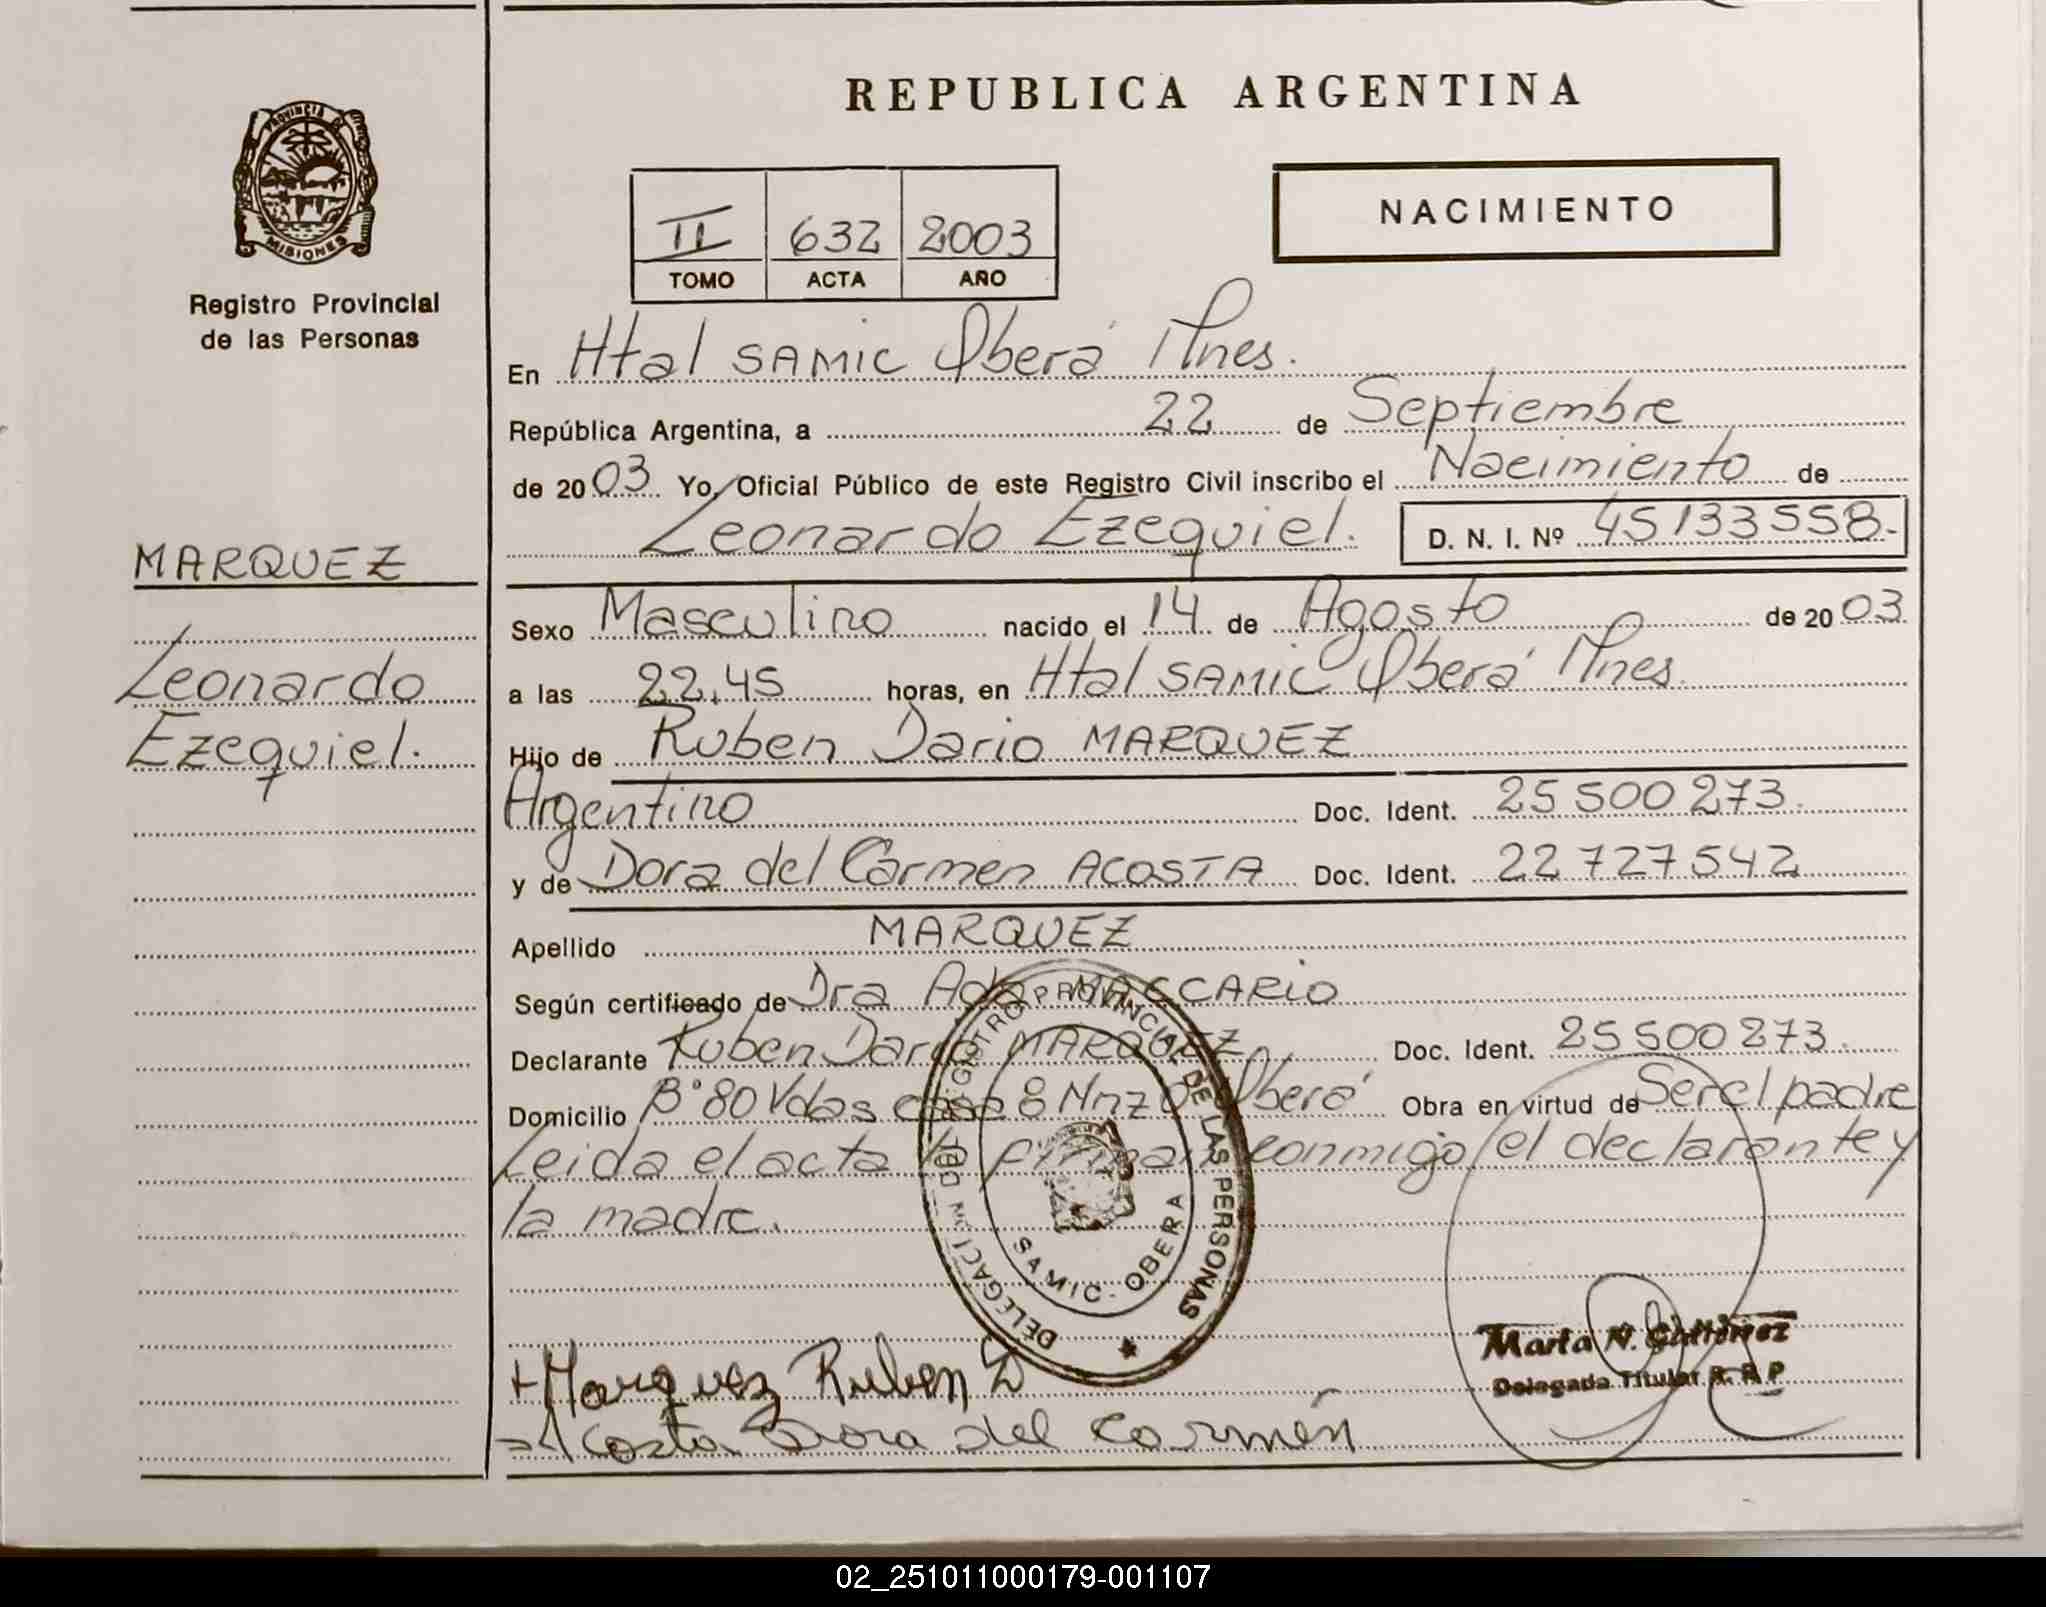 REPUBLICA ARGENTINA
PROVINCIA DE
MISIONES
Registro Provincial
de las Personas
II 632 2003
TOMO ACTA AÑO
NACIMIENTO
En Htal SAMIC Oberá Mnes.
República Argentina, a 22 de Septiembre
de 2003 Yo, Oficial Público de este Registro Civil inscribo el Nacimiento de
Leonardo Ezequiel. D. N. I. Nº 45133558.-
MARQUEZ
Leonardo
Ezequiel.
Sexo Masculino nacido el 14 de Agosto de 2003
a las 22,45 horas, en Htal SAMIC Oberá Mnes.
Hijo de Ruben Dario MARQUEZ
Argentino Doc. Ident. 25 500 273.
y de Dora del Carmen ACOSTA Doc. Ident. 22 727 542
Apellido MARQUEZ
Según certificado de Dra Ada MACCARIO
Declarante Ruben Dario MARQUEZ Doc. Ident. 25 500 273.
Domicilio B° 80 Vdas casa 8 Mnz O Oberá Obra en virtud de Ser el padre
Leida el acta la firman conmigo el declarante y
la madre.
REGISTRO PROVINCIAL DE LAS PERSONAS
DELEGACION
SAMIC - OBERA
Marta N. Gutierrez
Delegada Titular R. R. P
+Marquez Ruben D
Acosta Dora del Carmén
02_251011000179-001107